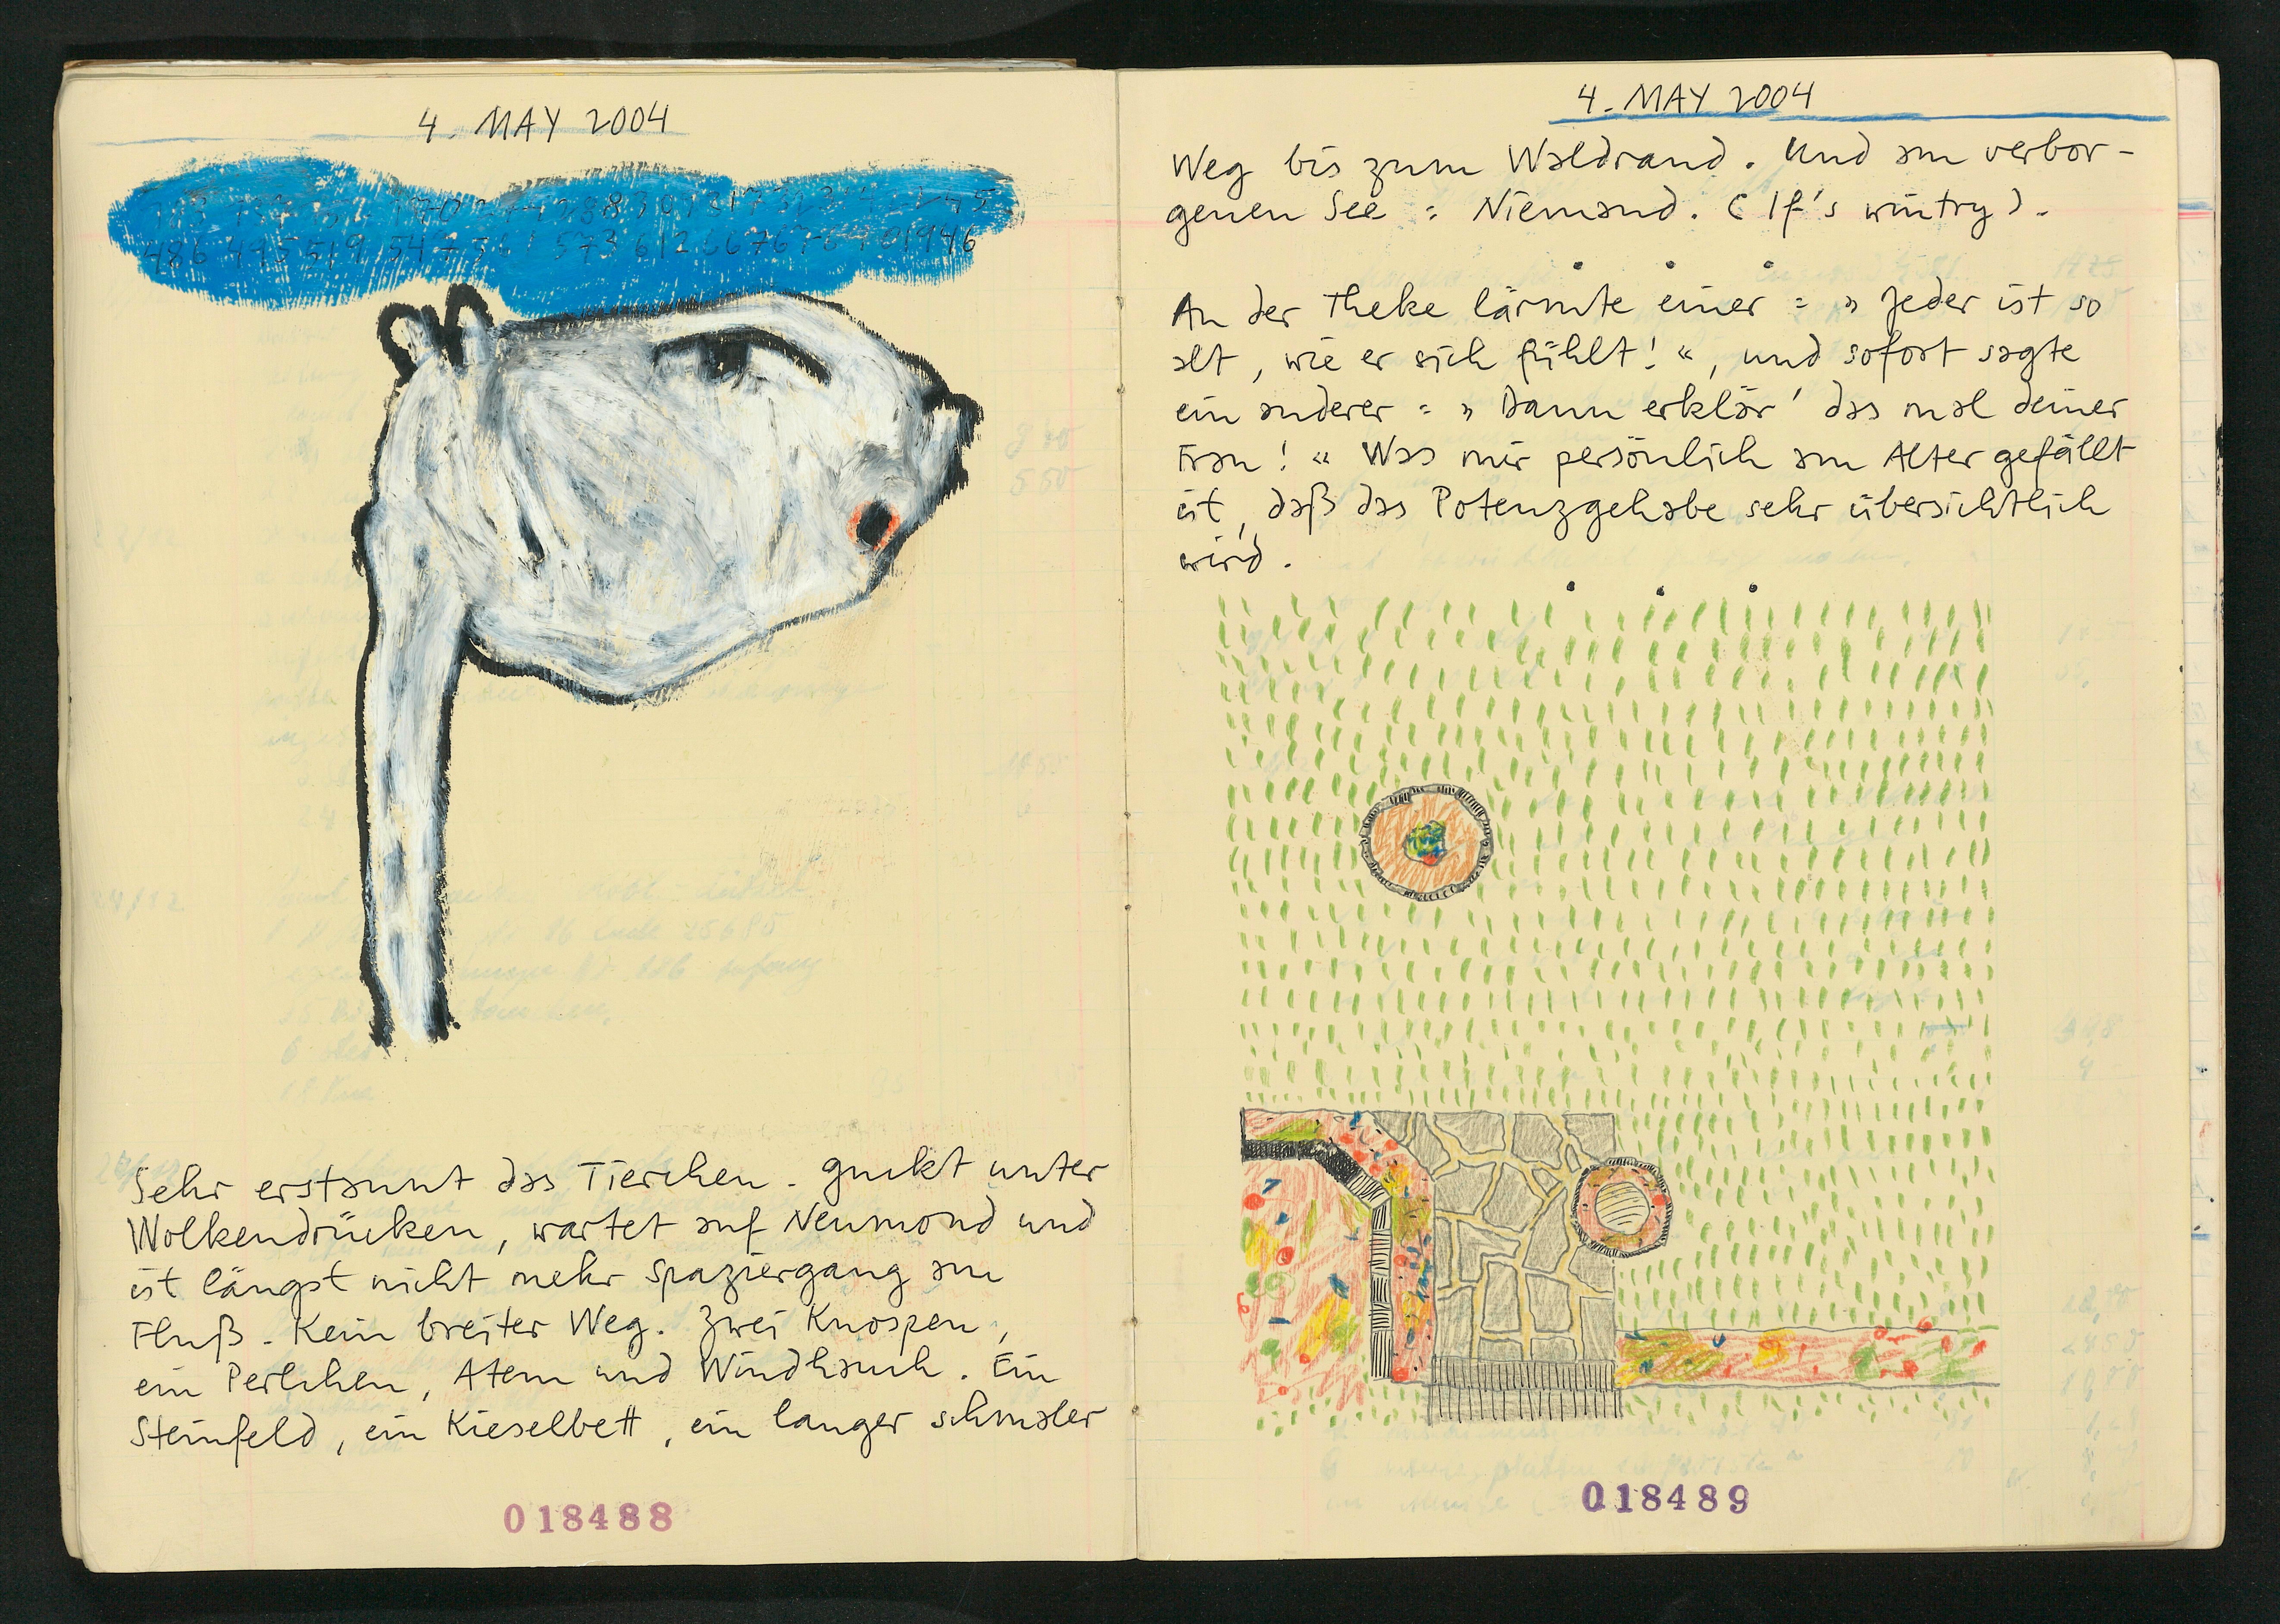 4. MAY 2004
Sehr erstaunt das Tierchen. guckt unter
Wolkendrücken, wartet auf Neumond und
ist längst nicht mehr spaziergang am
Fluß. Kein breiter Weg. Zwei Knospen,
ein Perlchen, Atem und Windhauch. Ein
Steinfeld, ein Kieselbett, ein langer schmaler
018488
4. MAY 2004
Weg bis zum Waldrand. Und am verbor-
genen See : Niemand. (It's wintry).
An der Theke lärmte einer : » Jeder ist so
alt, wie er sich fühlt! «, und sofort sagte
ein anderer : » Dann erklär' das mal deiner
Frau! « Was mir persönlich am Alter gefällt
ist, daß das Potenzgehabe sehr übersichtlich
wird.
018489